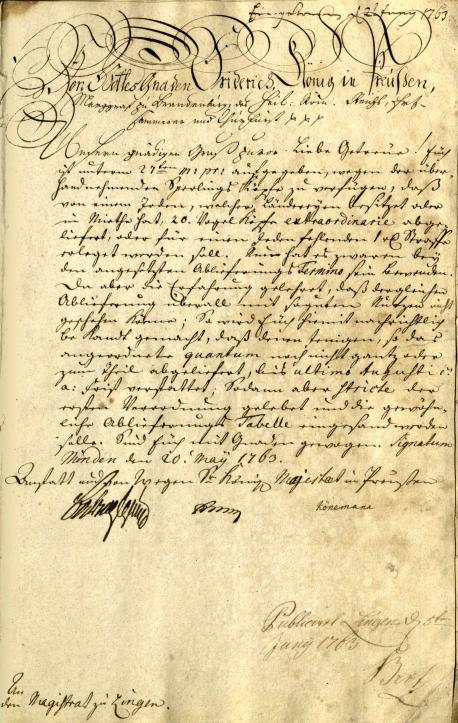 Juny 1763.
Von Gottes Gnaden Friderich, König in Preußen,
Marggraf zu Brandenburg, des Heil: Röm. Reichs Ertz-
Cammerer und Churfürst pp
Unsern gnädigen Gruß zuvor. Liebe Getreue! Euch
ist unterm 27ten aufgegeben, wegen der über-
handnehmenden Sperlings Köpfe zu verfügen, daß
von einem Jeden, welcher Länderyen besitzet oder
in Miethe hat, 20. Vogel Köpfe extraordinarie abge-
liefert, oder für einen Jeden fehlenden 1 Straffe
erleget werden soll. Nun hat es zwaren bey
den angesetzten Ablieferungs Termino sein bewenden.
Da aber die Erfahrung gelehret, daß dergleichen
Ablieferung überall mit Nutzen nicht
geschehen könne; So wird Euch hiemit nachrichtlich
bekandt gemacht, daß denen jenigen, so das
angeordnete quantum noch nicht gantz oder
zum theil abgeliefert, bis ultimo Augusti
a: Frist verstattet, Sodann aber stricte der
ersten Verordnung gelebet und die gewöhn-
liche Ablieferungs Tabelle eingesandt werden
solle. Sind Euch mit Gnaden gewogen. Signatum
Minden den 20. May 1763.
Anstatt und von wegen Sr Königl Majestaet in Preußen
Könemann
Publicirt Lingen d 5ten
Juny 1763
An
den Magistrat zu Lingen.